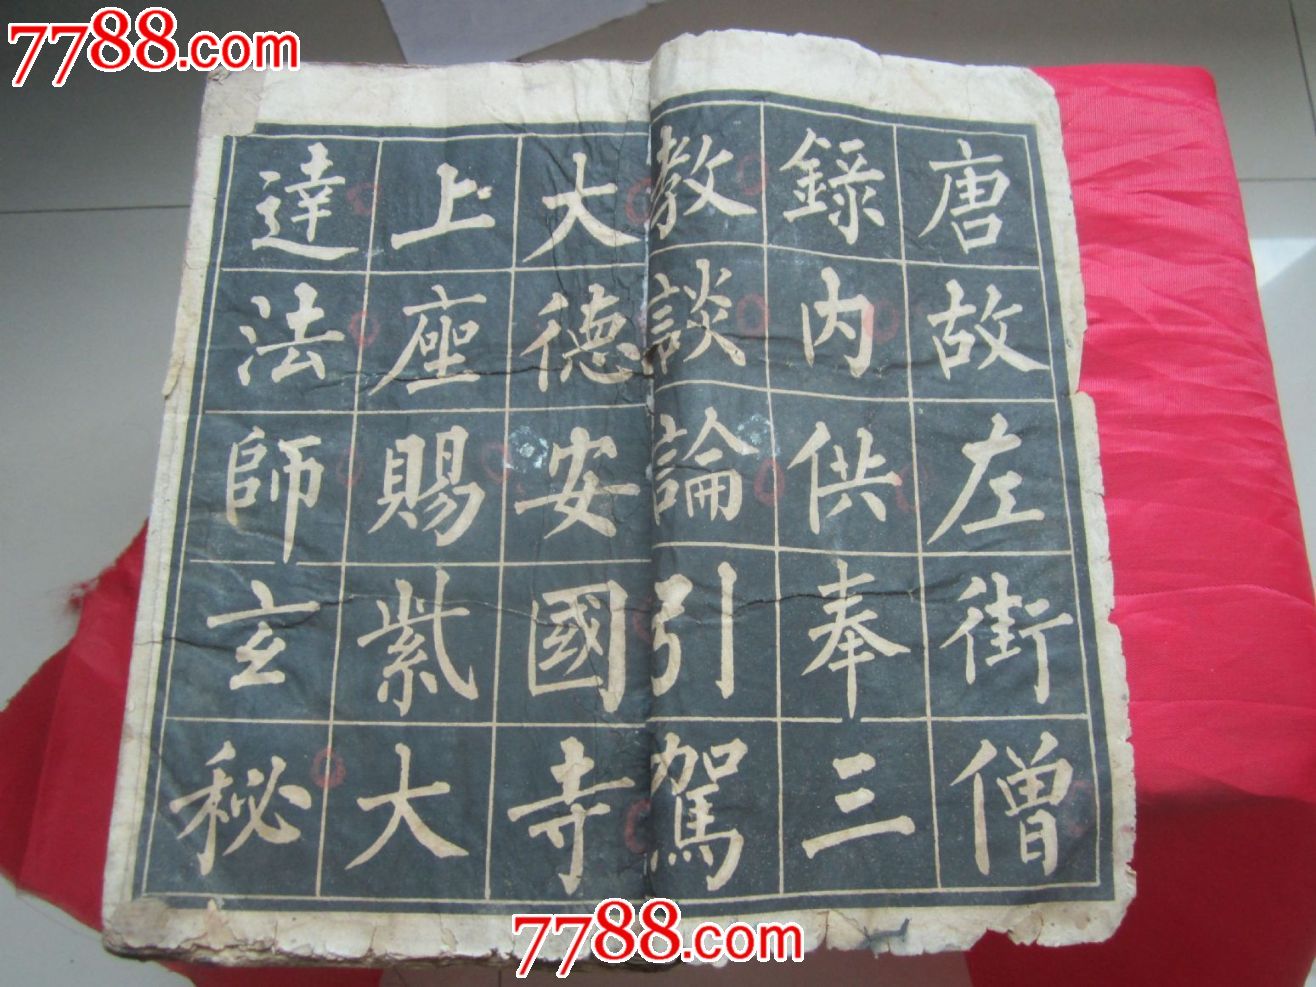 7788.com
唐故左街僧
錄內供奉三
教談論引駕
大德安國寺
上座賜紫大
達法師玄秘
7788.com